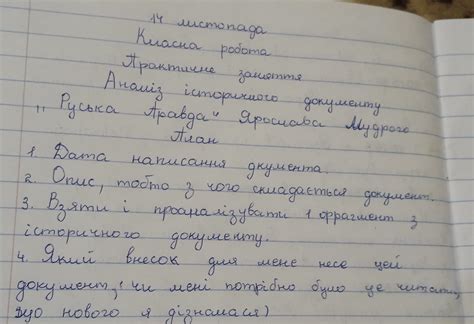 14 листопада
Класна робота
Практичне заняття
Аналіз історичного документу
"Руська Правда" Ярослава Мудрого
План
1. Дата написання дкумента.
2. Опис, тобто з чого складається документ.
3. Взяти і проаналізувати 1 фрагмент з
історичного документу.
4. Який внесок для мене несе цей
документ, (чи мені потрібно було це читати,
що нового я дізналася)